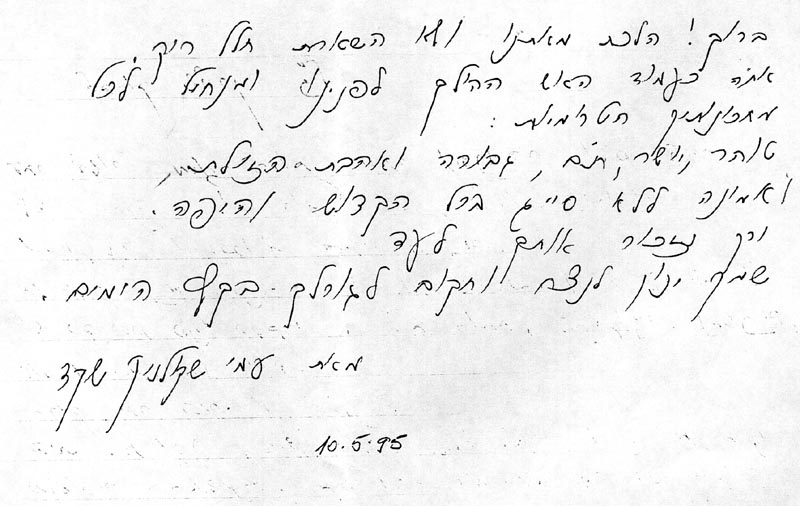 ברוך! הלכת מאתנו ולא השארת חלל ריק.
אתה כעמוד האש ההולך לפנינו ומנחיל לכל
תכונותיך הטרומיות:
טוהר, יושר, תום, גבורה ואהבת הזולת,
ואמונה ללא סייג בכל הקדוש והיפה.
וכך נזכור אותך לעד
שמך ינון לנצח ותקום לגורלך בקץ הימים.
מאת עמי שקולניק שקד
10.5.95